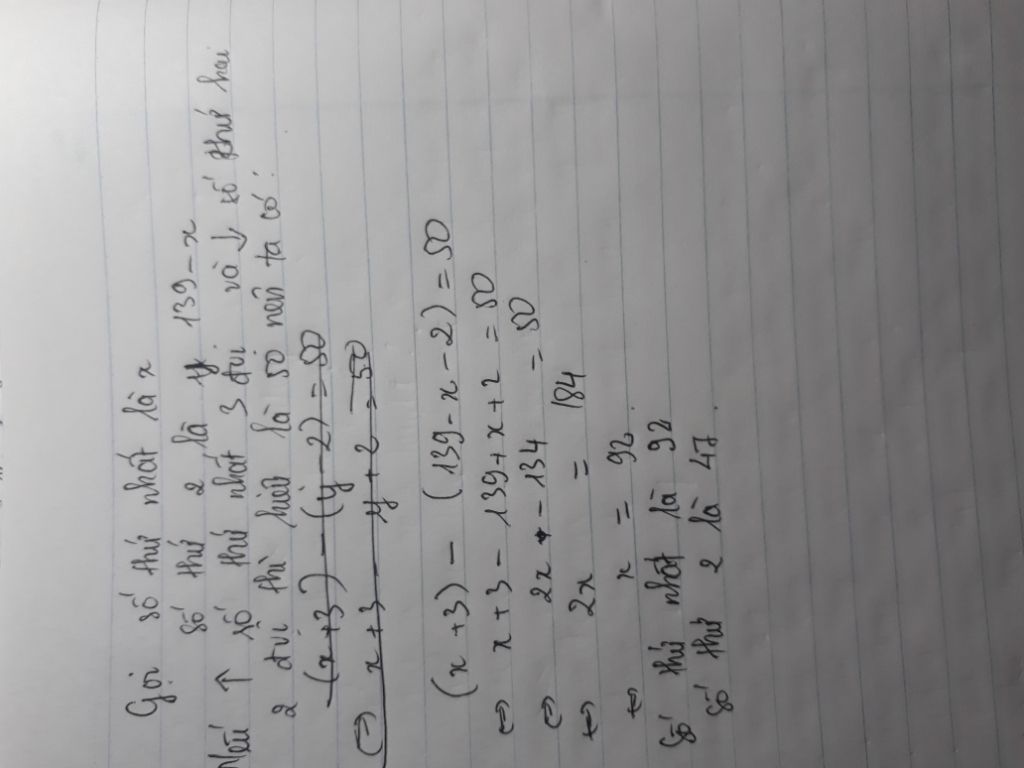 Gọi số thứ nhất là x
số thứ 2 là y 139 - x
Nếu ↑ số thứ nhất 3 đvi và ↓ số thứ hai
2 đvi thì hiệu là 50 nên ta có:
(x + 3) - (y - 2) = 50
⇔ x + 3 - y + 2 = 50
(x + 3) - (139 - x - 2) = 50
⇔ x + 3 - 139 + x + 2 = 50
⇔ 2x - 134 = 50
⇔ 2x = 184
⇔ x = 92
Số thứ nhất là 92
Số thứ 2 là 47